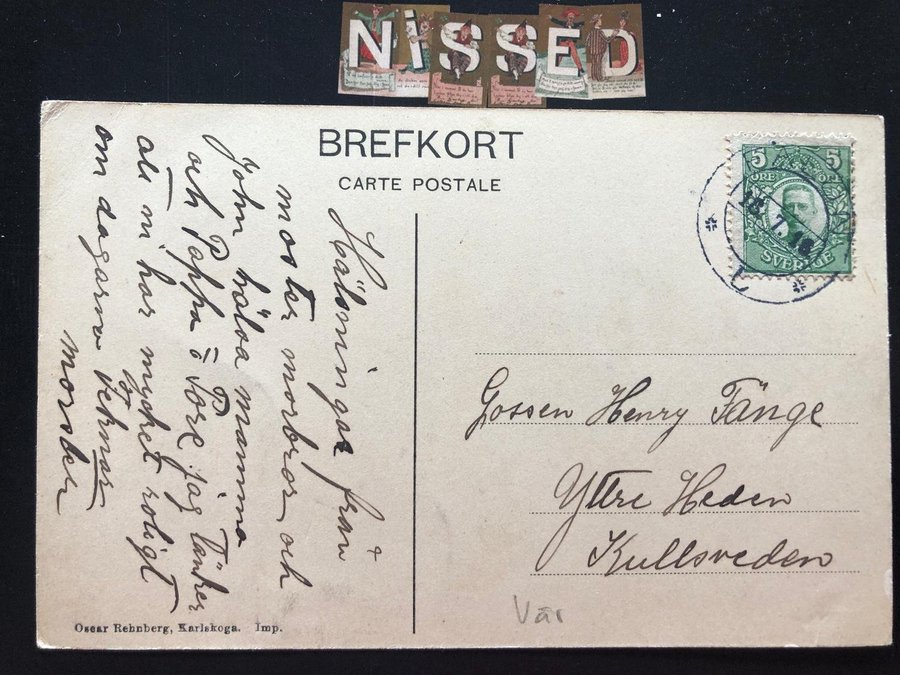 NISSED
BREFKORT
CARTE POSTALE
5 5
ÖRE
SVERIGE
18.7.16
Hälsningar från
moster morbror och
John hälsa mamma
och Pappa å Tore jag Tänker
att ni har mycket roligt
om dagarna
morster
Gossen Henry Tänge
Yttre Heden
Kullsveden
Vår
Oscar Rehnberg, Karlskoga. Imp.